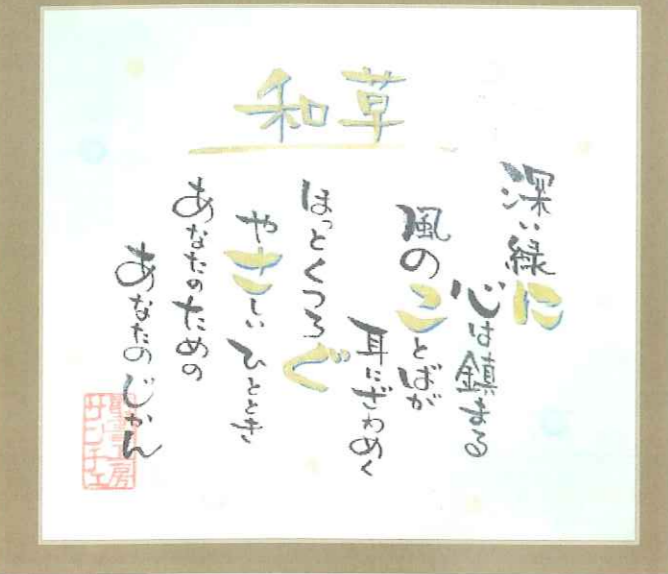 和草
深い緑に
心は鎮まる
風のことばが
耳にざわめく
ほっとくつろぐ
やさしいひととき
あなたのための
あなたのじかん
工房
サンチエ